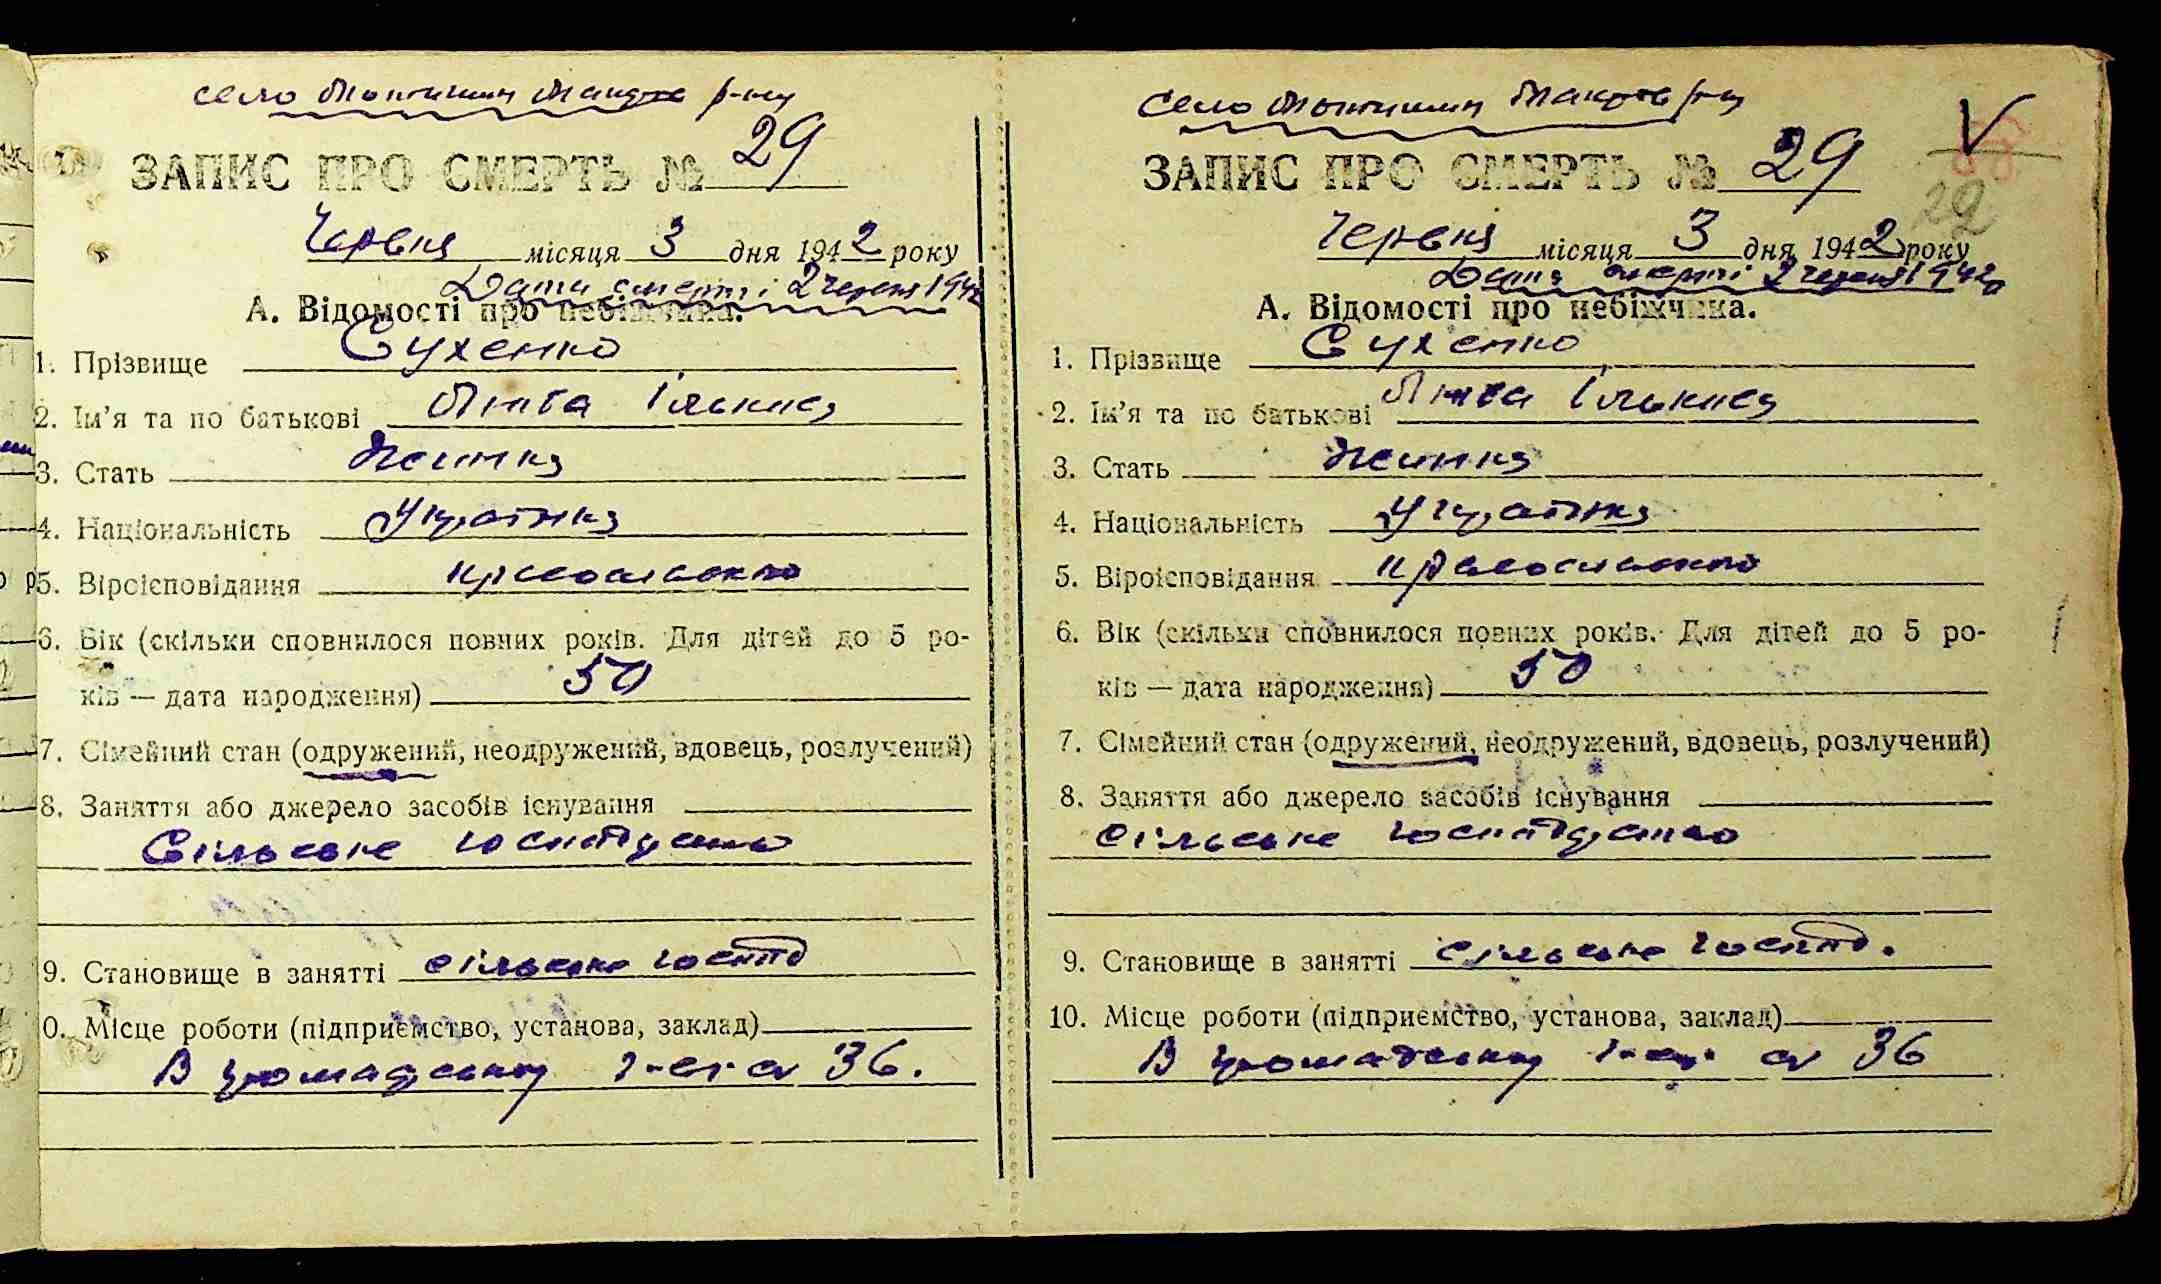 село Мотижин Макарів р-ну
ЗАПИС ПРО СМЕРТЬ № 29
Червня місяця 3 дня 1942 року
Дата смерті 2 червня 1942
А. Відомості про небіжчика.
1. Прізвище Сухенко
2. Ім'я та по батькові Ільківна
3. Стать Жінка
4. Національність Українка
5. Віроісповідання православна
6. Вік (скільки сповнилося повних років. Для дітей до 5 ро-
ків — дата народження) 50
7. Сімейний стан (одружений, неодружений, вдовець, розлучений)
8. Заняття або джерело засобів існування
Сільське господарство
9. Становище в занятті сільське господ
0. Місце роботи (підприємство, установа, заклад)
В громадському 36.
село Мотижин Макарів р-ну
ЗАПИС ПРО СМЕРТЬ № 29
29
Червня місяця 3 дня 1942 року
Дата смерті 2 червня 1942
А. Відомості про небіжчика.
1. Прізвище Сухенко
2. Ім'я та по батькові Ільківна
3. Стать Жінка
4. Національність Українка
5. Віроісповідання православна
6. Вік (скільки сповнилося повних років. Для дітей до 5 ро-
ків — дата народження) 50
7. Сімейний стан (одружений, неодружений, вдовець, розлучений)
8. Заняття або джерело засобів існування
сільське господарство
9. Становище в занятті сільське господ.
10. Місце роботи (підприємство, установа, заклад)
В громадському 36